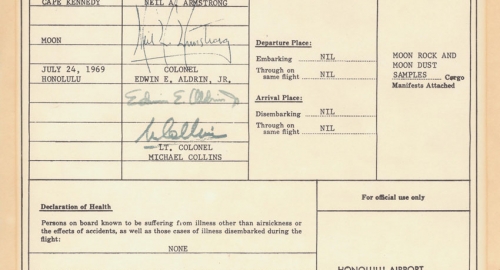 CAPE KENNEDY
NEIL A. ARMSTRONG
Neil A. Armstrong
MOON
JULY 24, 1969
HONOLULU
COLONEL
EDWIN E. ALDRIN, JR.
Edwin E. Aldrin
M Collins
LT. COLONEL
MICHAEL COLLINS
Departure Place:
Embarking NIL
Through on
same flight NIL
Arrival Place:
Disembarking NIL
Through on
same flight NIL
MOON ROCK AND
MOON DUST
SAMPLES Cargo
Manifests Attached
Declaration of Health
Persons on board known to be suffering from illness other than airsickness or
the effects of accidents, as well as those cases of illness disembarked during the
flight:
NONE
For official use only
HONOLULU AIRPORT